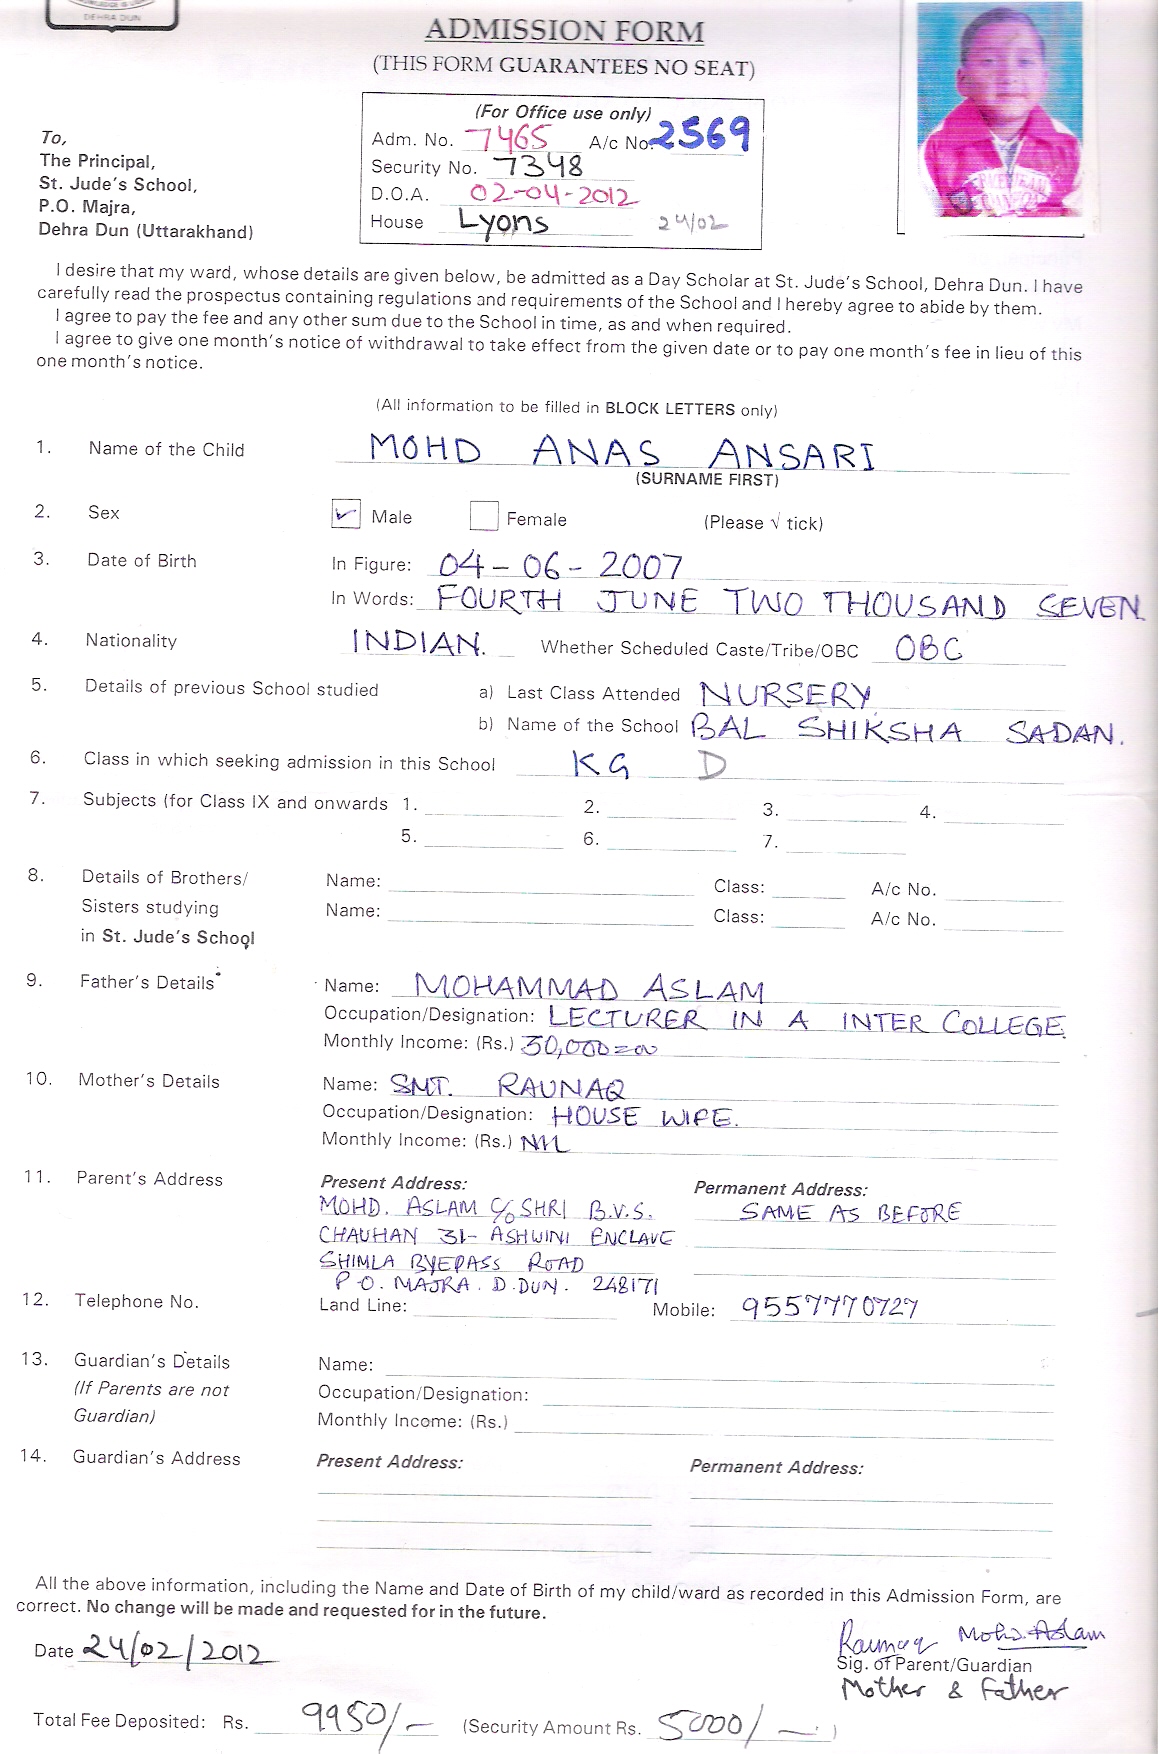 DEHRA DUN
ADMISSION FORM
(THIS FORM GUARANTEES NO SEAT)
(For Office use only)
Adm. No. 7465 A/c No. 2569
Security No. 7348
D.O.A. 02-04-2012
House Lyons 24/02
To,
The Principal,
St. Jude's School,
P.O. Majra,
Dehra Dun (Uttarakhand)
I desire that my ward, whose details are given below, be admitted as a Day Scholar at St. Jude's School, Dehra Dun. I have
carefully read the prospectus containing regulations and requirements of the School and I hereby agree to abide by them.
I agree to pay the fee and any other sum due to the School in time, as and when required.
I agree to give one month's notice of withdrawal to take effect from the given date or to pay one month's fee in lieu of this
one month's notice.
(All information to be filled in BLOCK LETTERS only)
1. Name of the Child MOHD ANAS ANSARI
(SURNAME FIRST)
2. Sex Male Female (Please √ tick)
3. Date of Birth In Figure: 04-06-2007
In Words: FOURTH JUNE TWO THOUSAND SEVEN.
4. Nationality INDIAN. Whether Scheduled Caste/Tribe/OBC OBC
5. Details of previous School studied a) Last Class Attended NURSERY
b) Name of the School BAL SHIKSHA SADAN.
6. Class in which seeking admission in this School KG D
7. Subjects (for Class IX and onwards 1. 2. 3. 4.
5. 6. 7.
8. Details of Brothers/ Name: Class: A/c No.
Sisters studying Name: Class: A/c No.
in St. Jude's School
9. Father's Details Name: MOHAMMAD ASLAM
Occupation/Designation: LECTURER IN A INTER COLLEGE
Monthly Income: (Rs.) 30,000=00
10. Mother's Details Name: SMT. RAUNAQ
Occupation/Designation: HOUSE WIFE.
Monthly Income: (Rs.) NIL
11. Parent's Address Present Address: Permanent Address:
MOHD. ASLAM C/o SHRI B.V.S. SAME AS BEFORE
CHAUHAN 31- ASHWINI ENCLAVE
SHIMLA BYEPASS ROAD
P.O. MAJRA. D.DUN. 248171
12. Telephone No. Land Line: Mobile: 9557770727
13. Guardian's Details Name:
(If Parents are not Occupation/Designation:
Guardian) Monthly Income: (Rs.)
14. Guardian's Address Present Address: Permanent Address:
All the above information, including the Name and Date of Birth of my child/ward as recorded in this Admission Form, are
correct. No change will be made and requested for in the future.
Date 24/02/2012 Raunaq Mohd. Aslam
Sig. of Parent/Guardian
Mother & Father
Total Fee Deposited: Rs. 9950/- (Security Amount Rs. 5000/-)